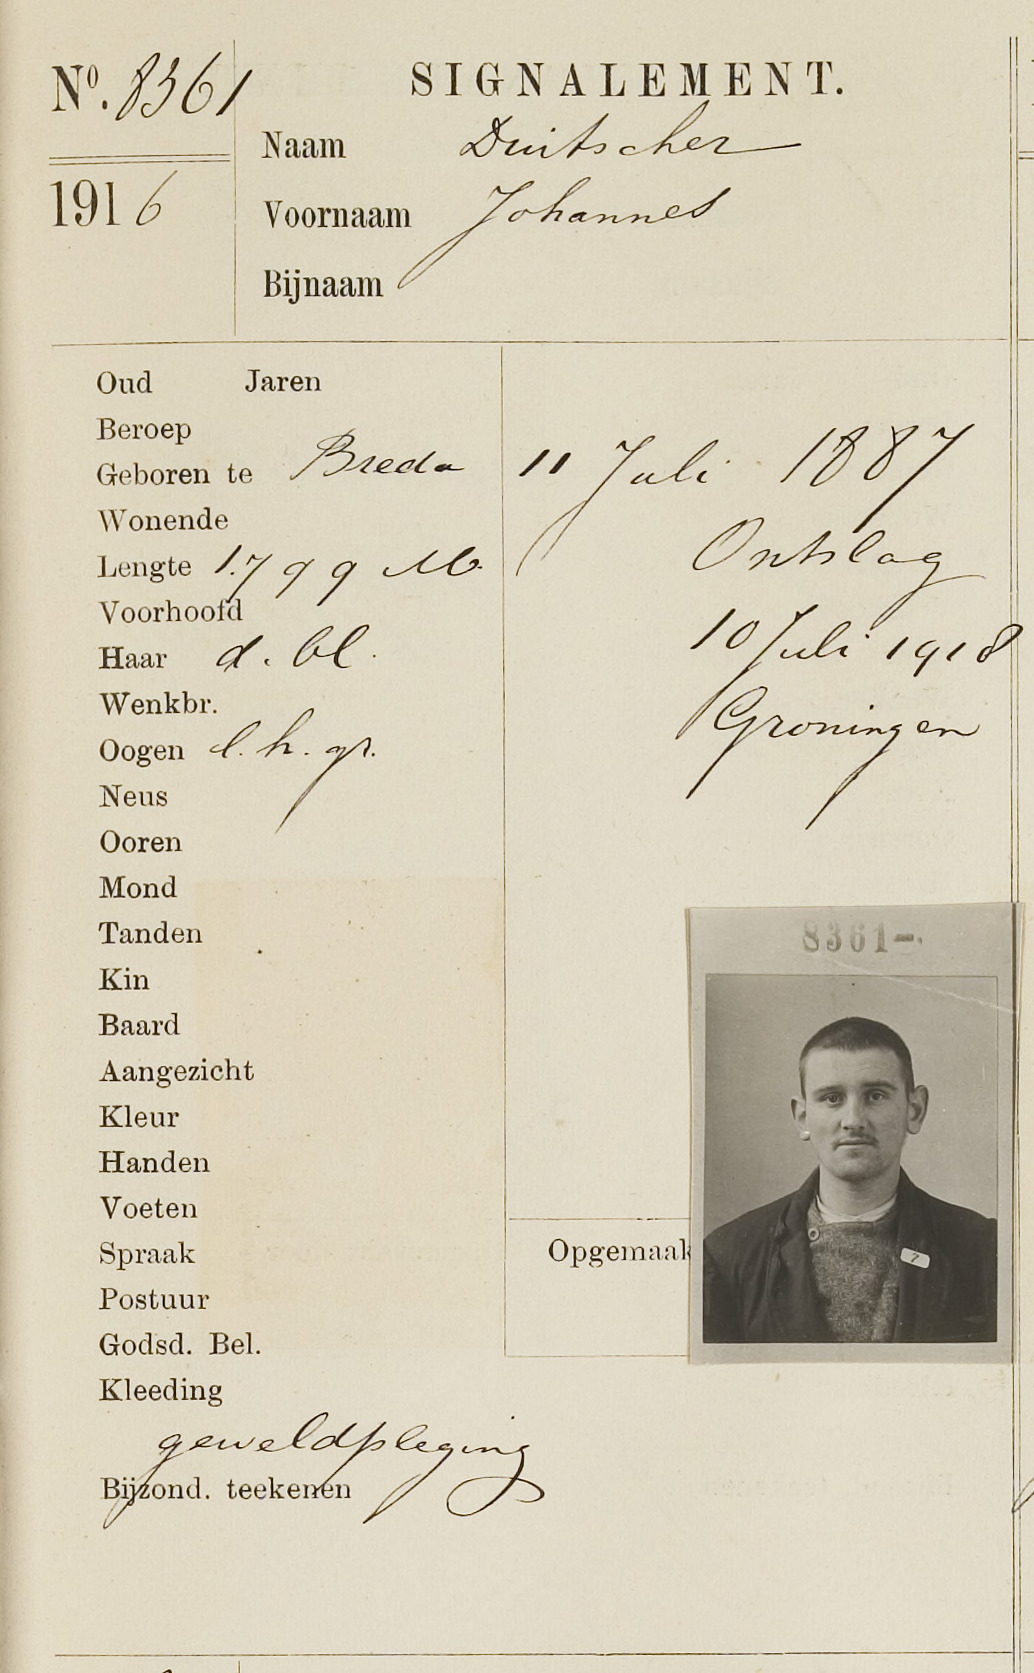 No. 8361
SIGNALEMENT.
Naam Duitscher
1916
Voornaam Johannes
Bijnaam
Oud Jaren
Beroep
Geboren te Breda 11 Juli 1887
Wonende
Lengte 1.799 M.
Ontslag
Voorhoofd
10 Juli 1918
Haar d. bl.
Wenkbr.
Groningen
Oogen l. h. gr.
Neus
Ooren
Mond
Tanden
8361-.
Kin
Baard
Aangezicht
Kleur
Handen
Voeten
Spraak
Opgemaak
7
Postuur
Godsd. Bel.
Kleeding
geweldpleging
Bijzond. teekenen